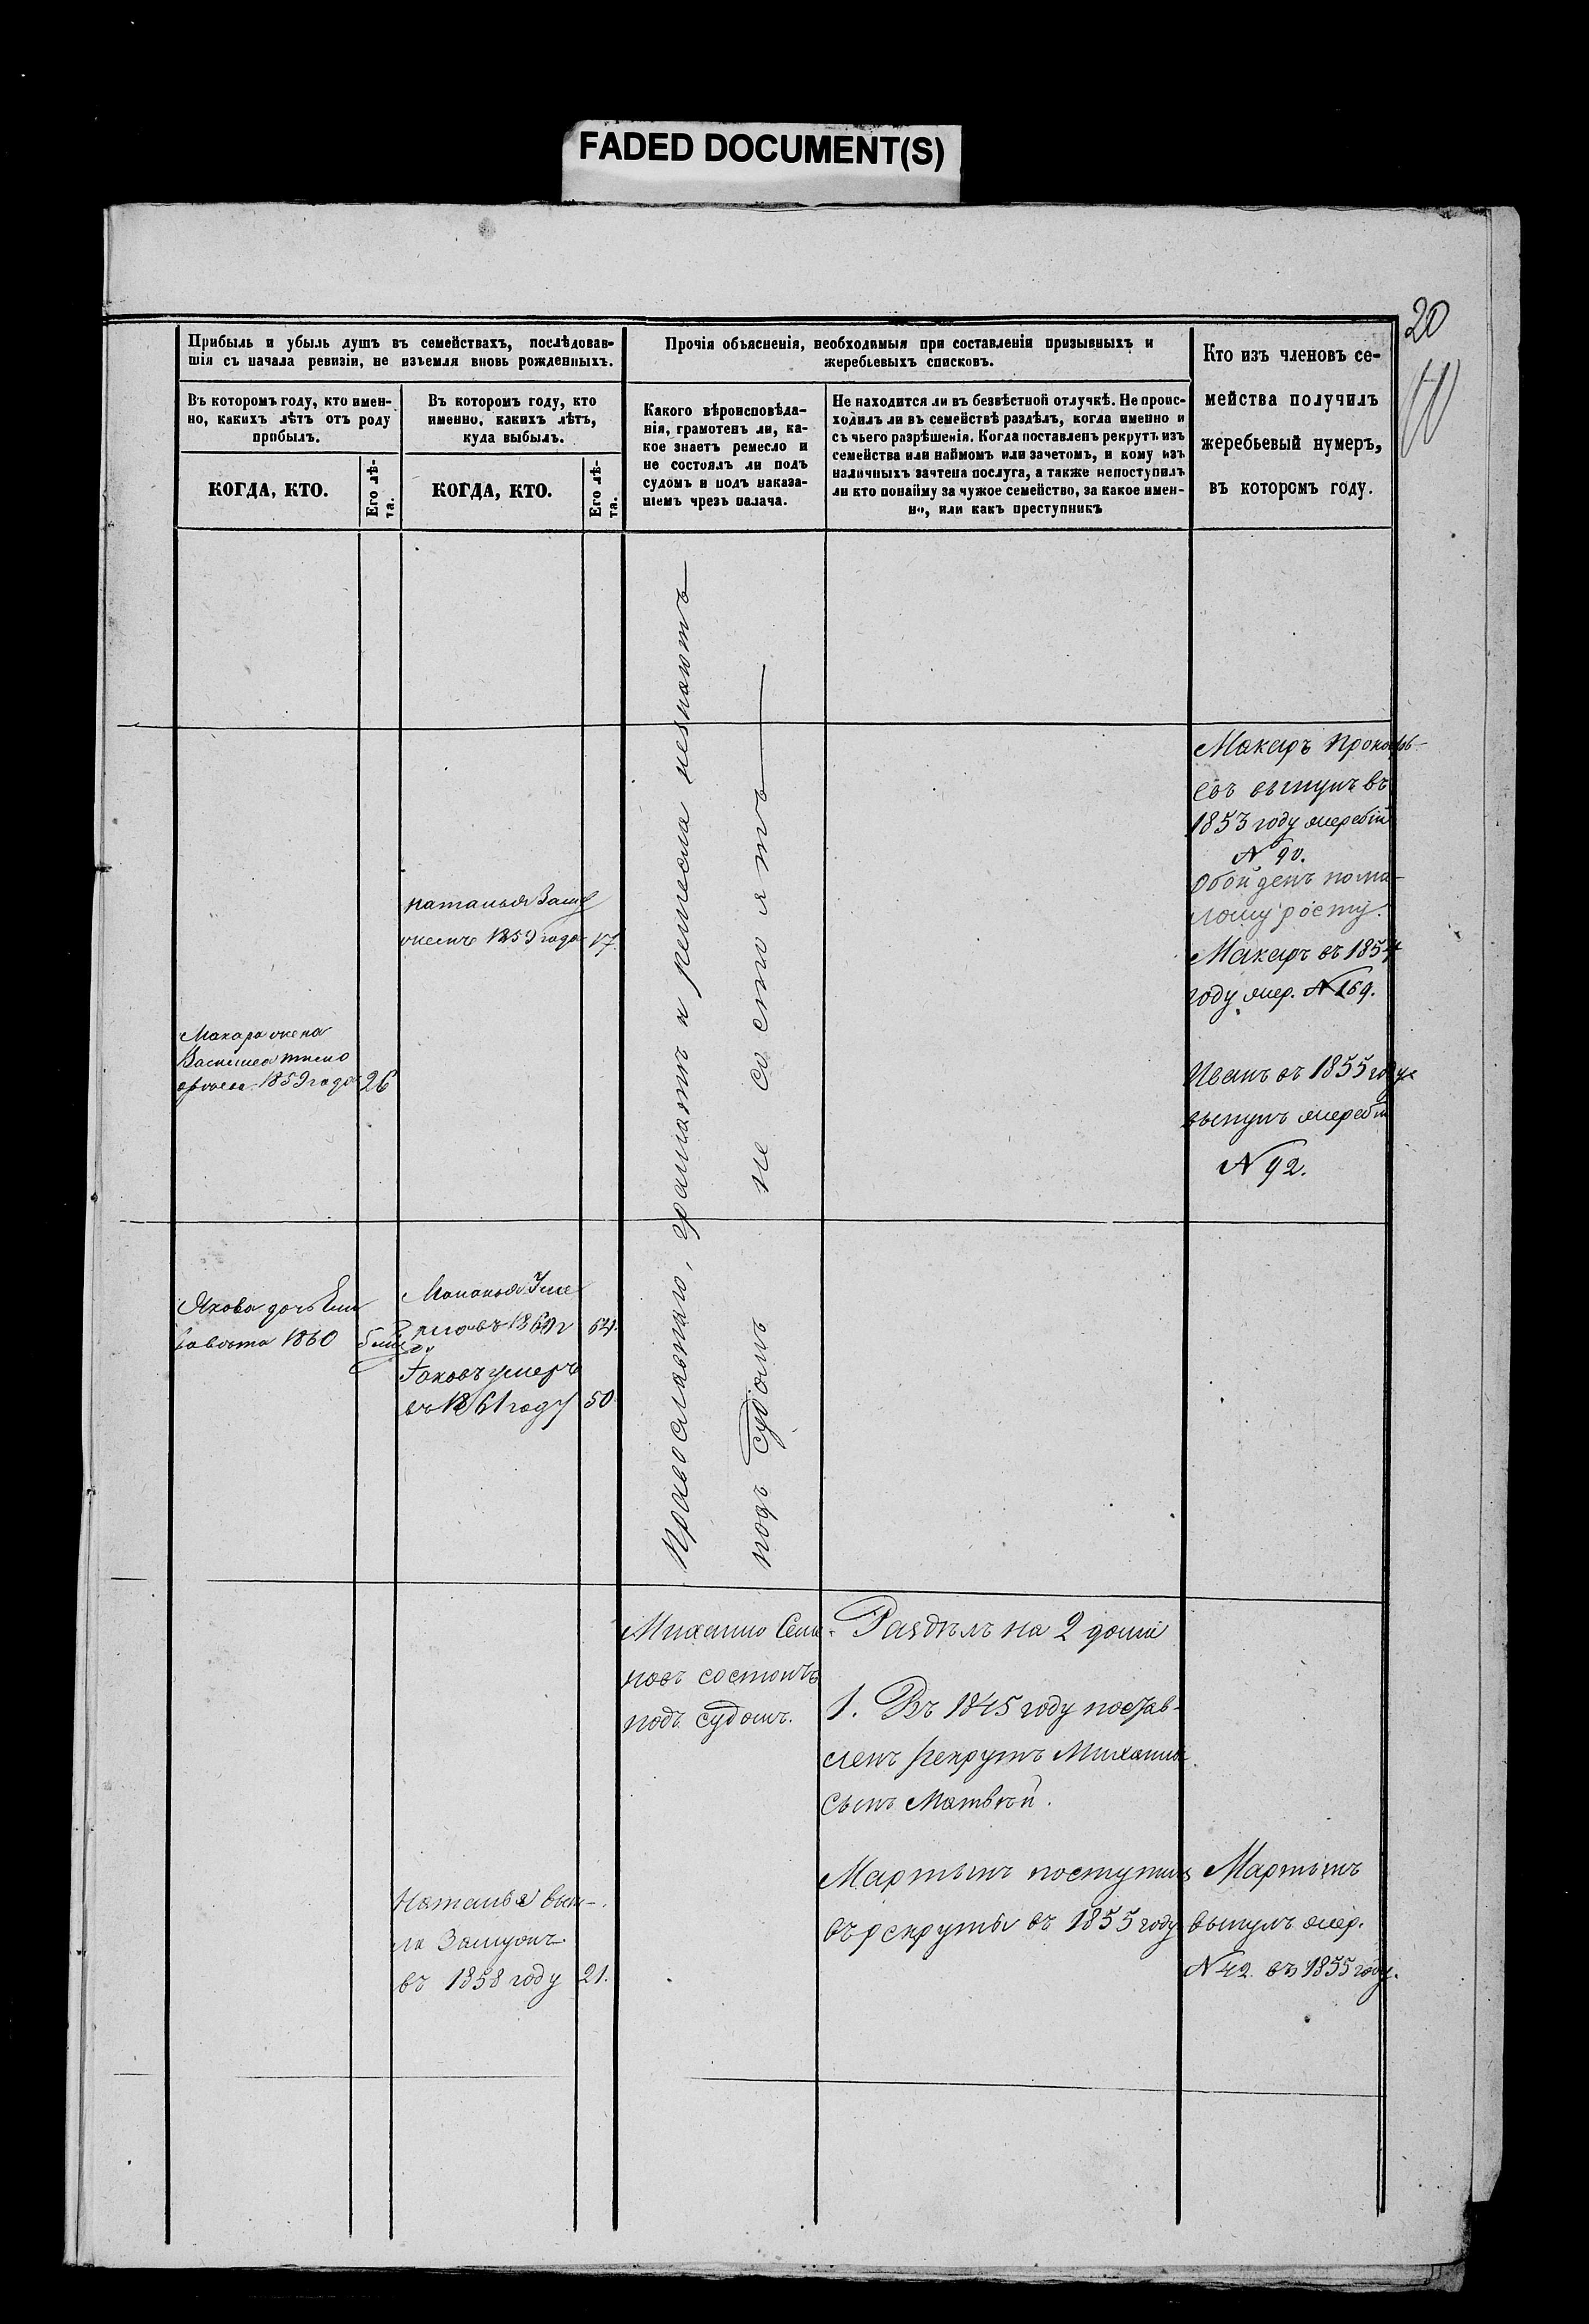 FADED DOCUMENT(S)
20
Прибыль и убыль душъ въ семействахъ, послѣдовав-
шія съ начала ревизіи, не изъемля вновь рожденныхъ.
Въ которомъ году, кто имен-
но, какихъ лѣтъ отъ роду
прибылъ.
КОГДА, КТО.
Его лѣ-
та.
Въ которомъ году, кто
именно, какихъ лѣтъ,
куда выбылъ.
КОГДА, КТО.
Его лѣ-
та.
Прочія объясненія, необходимыя при составленіи призывныхъ и
жеребьевыхъ списковъ.
Какого вѣроисповѣда-
нія, грамотенъ ли, ка-
кое знаетъ ремесло и
не состоялъ ли подъ
судомъ и подъ наказа-
ніемъ чрезъ палача.
Не находится ли въ безвѣстной отлучкѣ. Не проис-
ходилъ ли въ семействѣ раздѣлъ, когда именно и
съ чьего разрѣшенія. Когда поставленъ рекрутъ изъ
семейства или наймомъ или зачетомъ, и кому изъ
наличныхъ зачтена послуга, а также непоступилъ
ли кто понайму за чужое семейство, за какое имен-
но, или какъ преступникъ
Кто изъ членовъ се-
мейства получилъ
жеребьевый нумеръ,
въ которомъ году.
Макара жена
Василиса
1859 года 26
Якова дочь
1860
наталья Заму
жемъ 1859 года 17.
64.
Іаковъ умеръ
въ 1861 году 50
Наталья вы-
ла Замужъ
въ 1858 году 21.
Православнаго, грамотѣ и ремесла незнаютъ
подъ судомъ не состоятъ
Михайло Семе-
новъ состоитъ
подъ судомъ.
Раздѣлъ на 2 доми
1. Въ 1845 году постав-
ленъ рекрутъ Михайла
сынъ Матвѣй.
Мартынъ поступилъ
въ рекруты въ 1855 году
Макаръ Прокофь-
евъ вынулъ въ
1853 году жеребій
N 90.
Обойденъ пома-
лому росту.
Макаръ въ 1854
году жер. N 169.
Иванъ въ 1855 году
вынулъ жеребій
N 92.
Мартынъ
вынулъ жер.
N 42. въ 1855 году.